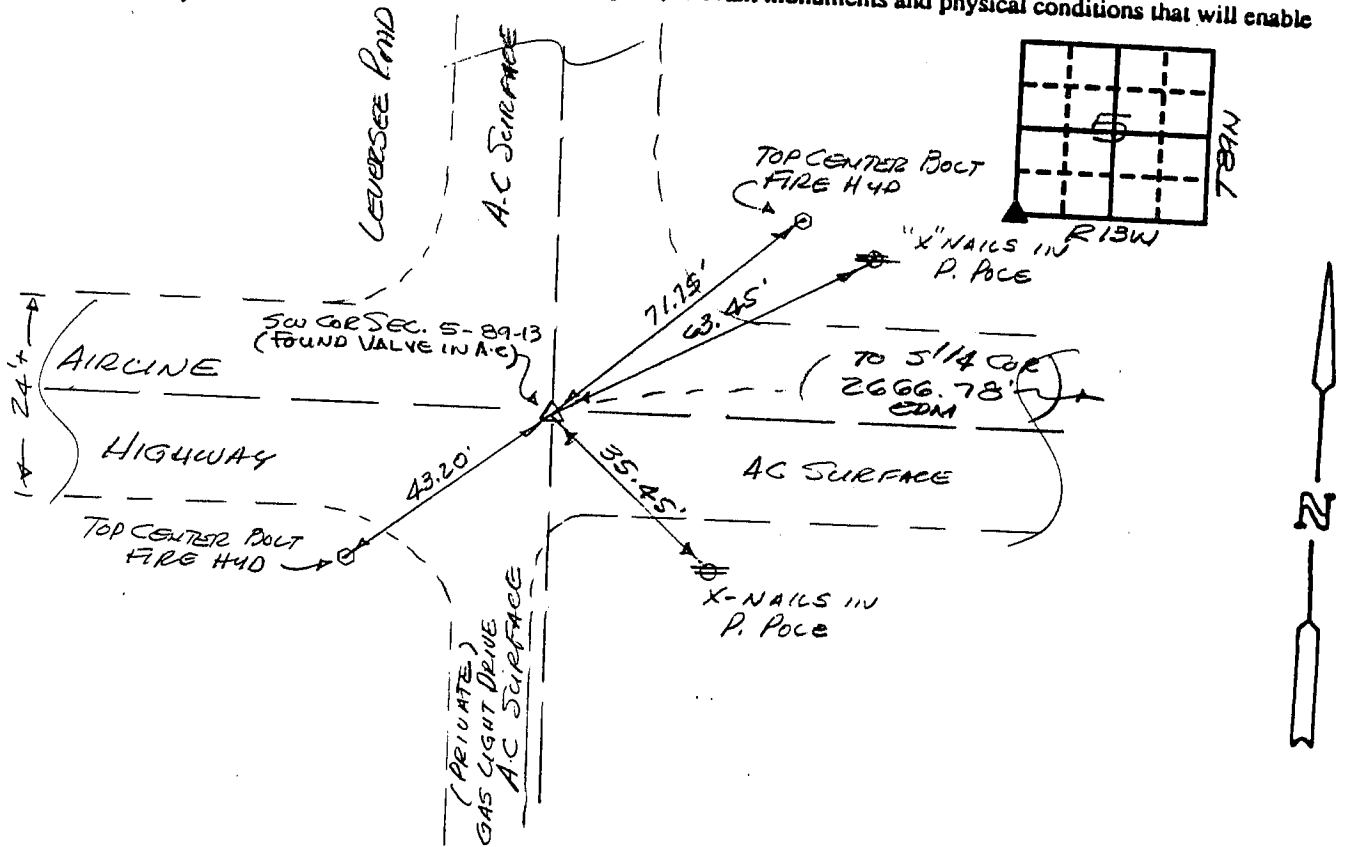 monuments and physical conditions that will enable
LEVERSEE ROAD
A.C SURFACE
TOP CENTER BOLT
FIRE HYD
5
T89N
R13W
"X" NAILS IN
P. POLE
71.75'
63.45'
SW COR SEC. 5-89-13
(FOUND VALVE IN A.C)
24'±
AIRLINE
HIGHWAY
TO S 1/4 COR
2666.78'
EDM
AC SURFACE
43.20'
35.45'
TOP CENTER BOLT
FIRE HYD
X-NAILS IN
P. POLE
(PRIVATE)
GAS LIGHT DRIVE
A.C SURFACE
N